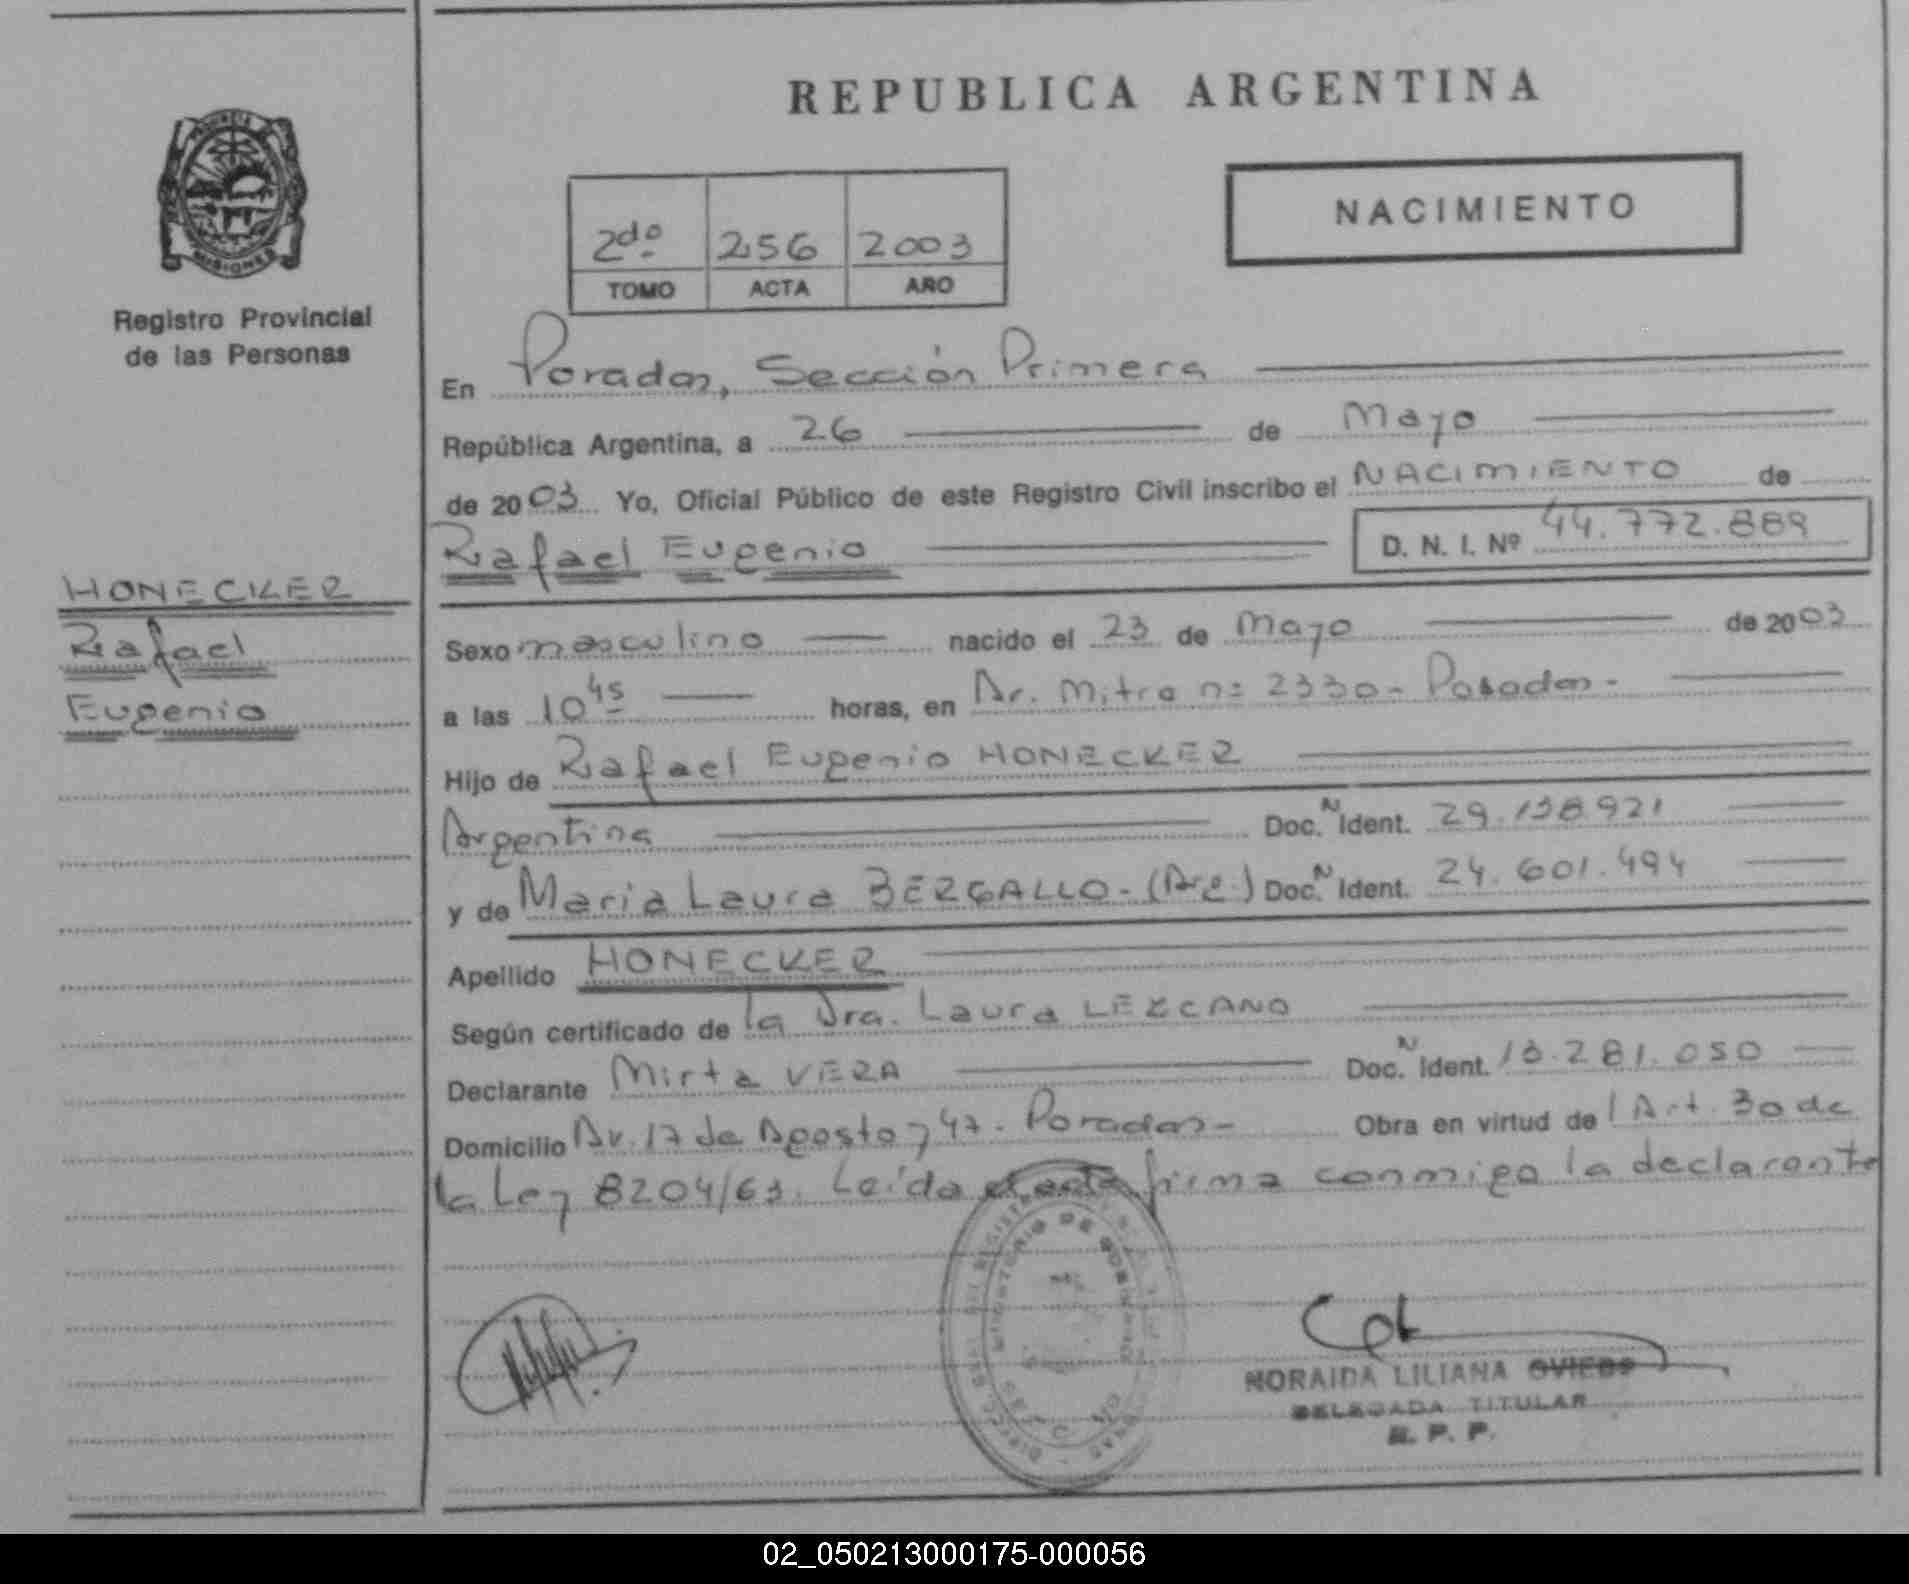 REPUBLICA ARGENTINA
PROVINCIA DE
MISIONES
Registro Provincial
de las Personas
HONECKER
Rafael
Eugenio
NACIMIENTO
2do 256 2003
TOMO ACTA AÑO
En Posadas, Sección Primera
República Argentina, a 26 de Mayo
de 2003 Yo, Oficial Público de este Registro Civil inscribo el NACIMIENTO de
Rafael Eugenio D. N. I. Nº 44.772.889
Sexo masculino nacido el 23 de Mayo de 2003
a las 10 45 horas, en Av. Mitre nº 2330 - Posadas -
Hijo de Rafael Eugenio HONECKER
Argentina Doc. N Ident. 29.138.921
y de Maria Laura BERGALLO - (Arg.) Doc. N Ident. 24.601.494
Apellido HONECKER
Según certificado de la Dra. Laura LEZCANO
Declarante Mirta VERA Doc. N Ident. 13.281.050
Domicilio Av. 17 de Agosto y 47 - Posadas - Obra en virtud del Art. 30 de
la Ley 8204/63. Leída el acta firma conmigo la declarante
NORAIDA LILIANA OVIEDO
DELEGADA TITULAR
R. P. P.
02_050213000175-000056